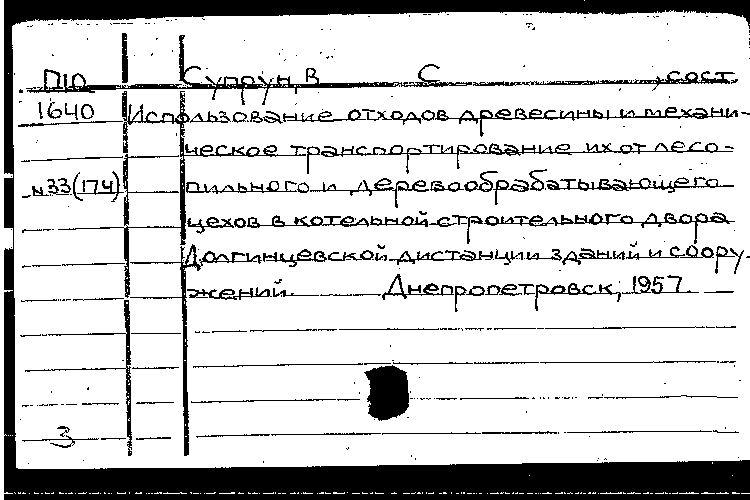 П10 Супрун, В С , сост.
1640 Использование отходов древесины и механи-
ческое транспортирование их от лесо-
№33(174) пильного и деревообрабатывающего
цехов в котельной строительного двора
Долгинцевской дистанции зданий и соору-
жений. Днепропетровск, 1957.
3